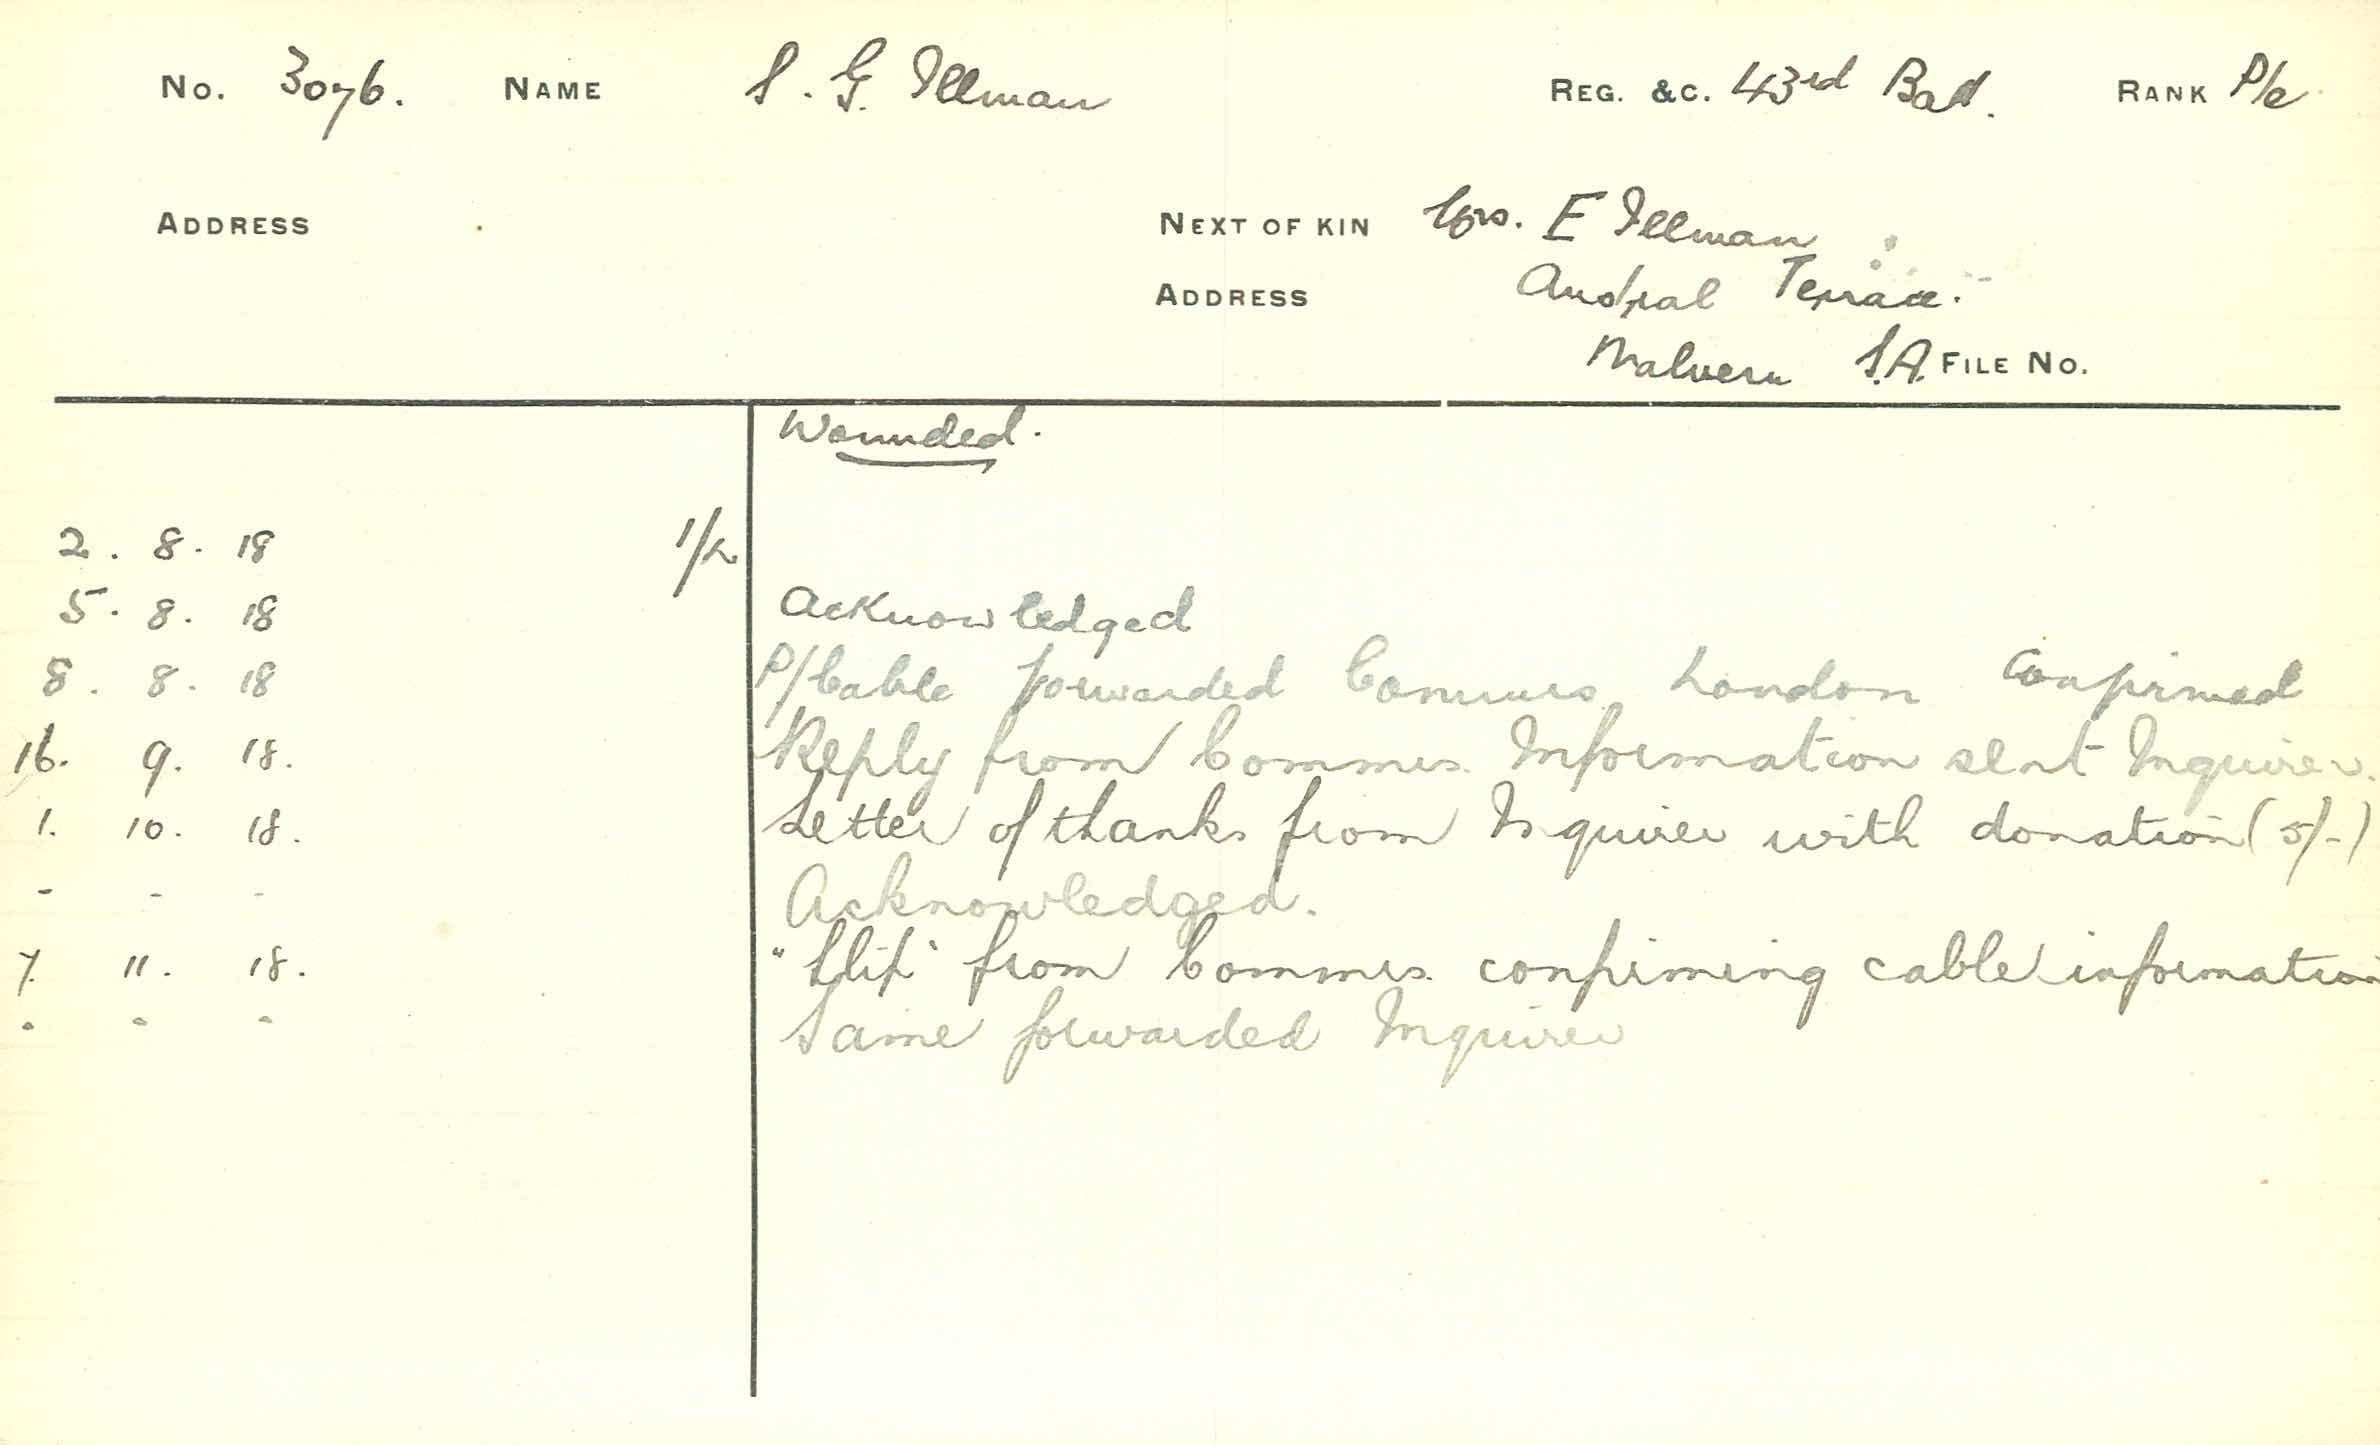 No. 3076. NAME S. G. Illman REG. &C. 43rd Bat. RANK P/e
ADDRESS NEXT OF KIN Mrs. E Illman
ADDRESS Austral Terrace.
Malvern S.A. FILE No.
Wounded.
2. 8. 18 1/L
5. 8. 18 Acknowledged
8. 8. 18 P/Cable forwarded Commrs. London Confirmed
16. 9. 18. Reply from Commrs. Information sent Inquirer.
1. 10. 18. Letter of thanks from Inquirer with donation (5/-)
- - - Acknowledged.
7. 11. 18. "Slip" from Commrs. confirming cable information
" " " Same forwarded Inquirer